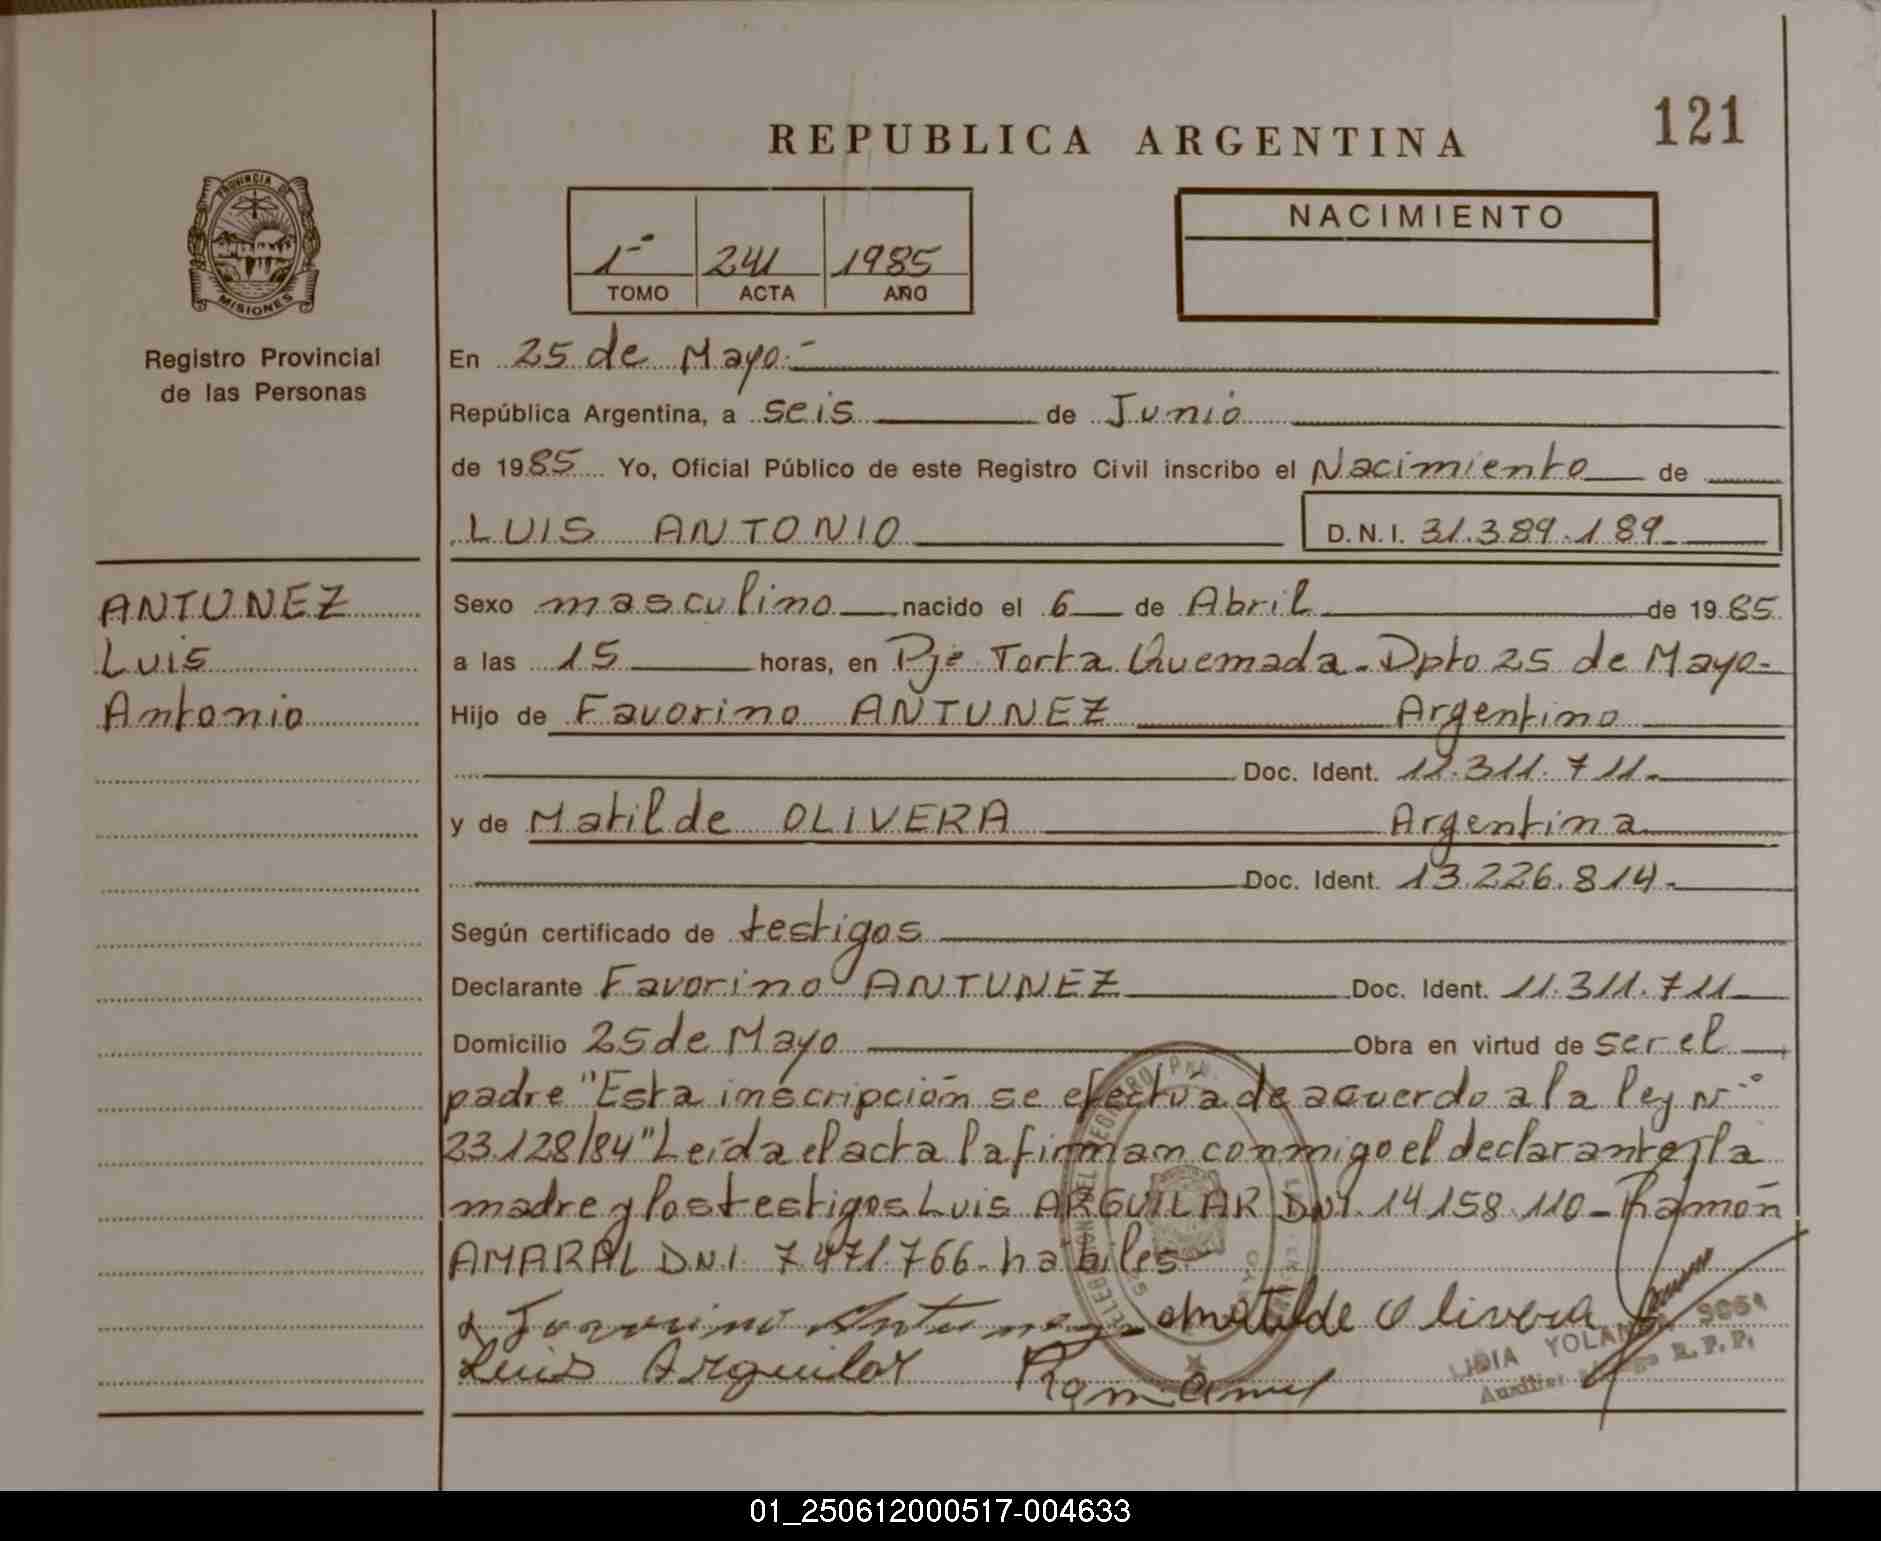 REPUBLICA ARGENTINA
121
PROVINCIA DE
MISIONES
Registro Provincial
de las Personas
1º 241 1985
TOMO ACTA AÑO
NACIMIENTO
En 25 de Mayo.-
República Argentina, a seis de Junio
de 1985 Yo, Oficial Público de este Registro Civil inscribo el Nacimiento de
LUIS ANTONIO D.N.I. 31.389.189
ANTUNEZ
Luis
Antonio
Sexo masculino nacido el 6 de Abril de 1985
a las 15 horas, en Pje Torta Quemada - Dpto 25 de Mayo-
Hijo de Favorino ANTUNEZ Argentino
Doc. Ident. 11.311.711.
y de Matilde OLIVERA Argentina
Doc. Ident. 13.226.814.
Según certificado de testigos
Declarante Favorino ANTUNEZ Doc. Ident. 11.311.711
Domicilio 25 de Mayo Obra en virtud de ser el
padre "Esta inscripción se efectúa de acuerdo a la ley Nº
23.128/84" Leída el acta la firman conmigo el declarante, la
madre y los testigos Luis ARGUILAR DNI. 14.158.110 - Ramón
AMARAL D.N.I. 7.471.766 - hábiles
Favorino Antunez Matilde Olivera
Luis Arguilar
LIDIA
R. P. P.
01_250612000517-004633